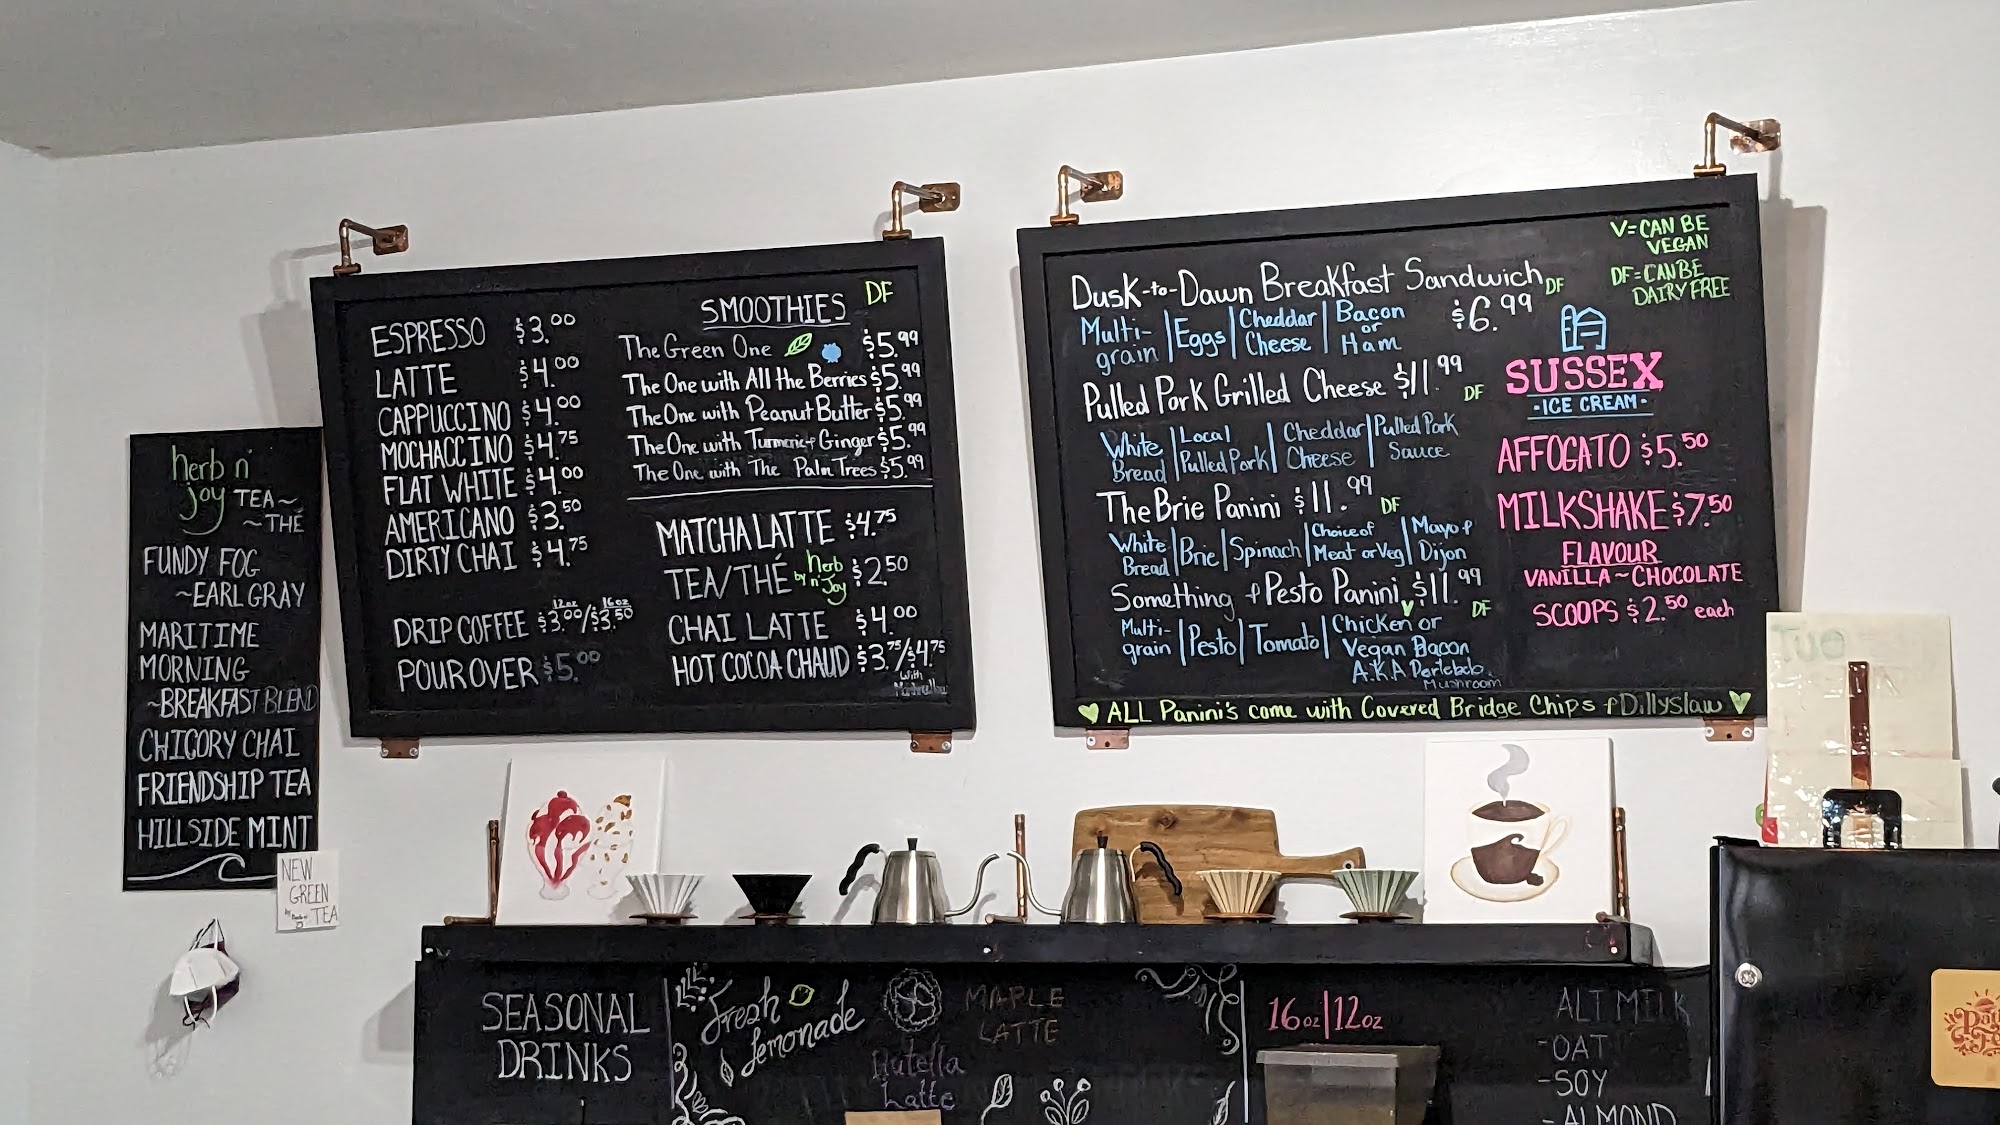 herb n'
joy TEA~
~THÉ
FUNDY FOG
~EARL GRAY
MARITIME
MORNING
~BREAKFAST BLEND
CHICORY CHAI
FRIENDSHIP TEA
HILLSIDE MINT
NEW
GREEN
TEA
ESPRESSO $3.00
LATTE $4.00
CAPPUCCINO $4.00
MOCHACCINO $4.75
FLAT WHITE $4.00
AMERICANO $3.50
DIRTY CHAI $4.75
12oz 16oz
DRIP COFFEE $3.00/$3.50
POUROVER $5.00
SMOOTHIES DF
The Green One $5.99
The One with All the Berries $5.99
The One with Peanut Butter $5.99
The One with Turmeric + Ginger $5.99
The One with The Palm Trees $5.99
MATCHA LATTE $4.75
TEA/THÉ by herb n' Joy $2.50
CHAI LATTE $4.00
HOT COCOA CHAUD $3.75/$4.75
with
V=CAN BE
VEGAN
DF=CAN BE
DAIRY FREE
Dusk-to-Dawn Breakfast Sandwich DF
$6.99
Multi-grain | Eggs | Cheddar Cheese | Bacon or Ham
Pulled Pork Grilled Cheese $11.99 DF
White Bread | Local Pulled Pork | Cheddar Cheese | Pulled Pork Sauce
The Brie Panini $11.99 DF
White Bread | Brie | Spinach | Choice of Meat or Veg | Mayo + Dijon
Something + Pesto Panini $11.99
V DF
Multi-grain | Pesto | Tomato | Chicken or
Vegan Bacon
A.K.A Portebelo
Mushroom
SUSSEX
-ICE CREAM-
AFFOGATO $5.50
MILKSHAKE $7.50
FLAVOUR
VANILLA~CHOCOLATE
SCOOPS $2.50 each
ALL Panini's come with Covered Bridge Chips + Dillyslaw
SEASONAL
DRINKS
Fresh
Lemonade
MAPLE
LATTE
Nutella
Latte
16oz|12oz
ALT MILK
-OAT
-SOY
-ALMOND